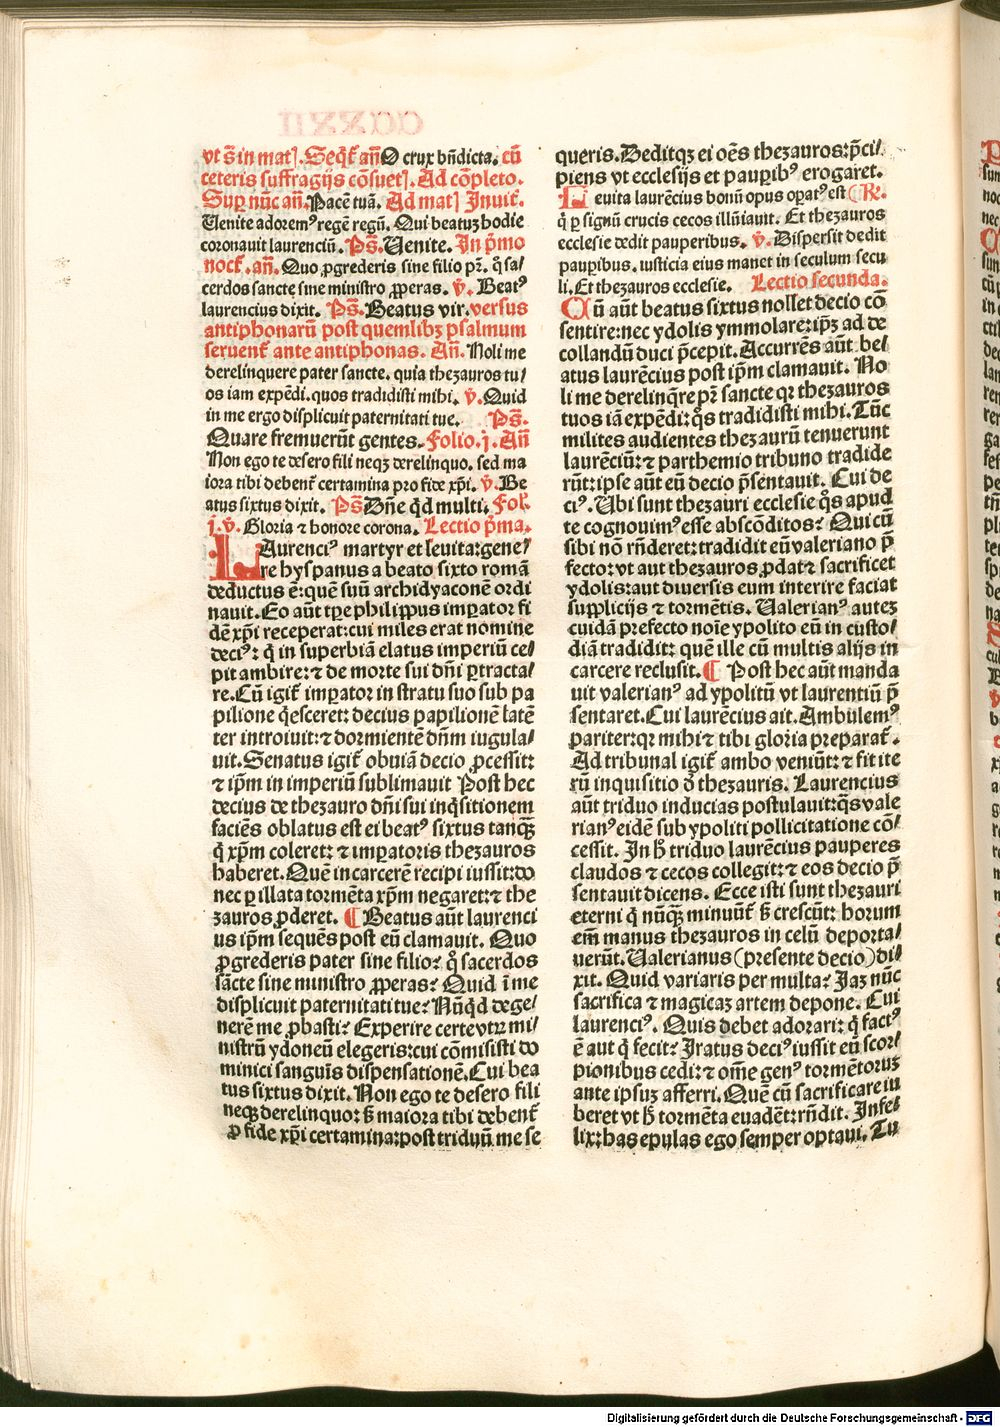 vt s̄ in matꝭ. Seq̄t̄ an̄ O crux bn̄dicta. cū
ceteris suffragijs cōsuetꝭ. Ad cōpleto.
Suꝑ nūc an̄. Pacē tuā. Ad matꝭ Inuit̄.
Uenite adoremꝰ regē regū. Qui beatuꝫ hodie
coronauit laurenciū. Ps̄. Uenite. In p̄mo
noct̄. an̄. Quo ꝓgrederis sine filio pr̄. q̊ sa/
cerdos sancte sine ministro ꝓperas. v̄. Beatꝰ
laurencius dixit. Ps̄. Beatus vir. versus
antiphonarū post quemlibꝫ psalmum
seruent̄ ante antiphonas. An̄. Noli me
derelinquere pater sancte. quia thezauros tu/
os iam expēdi. quos tradidisti mihi. v̄. Quid
in me ergo displicuit paternitati tue. Ps̄.
Quare fremuerūt gentes. Folio. j. An̄
Non ego te desero fili neqꝫ derelinquo. sed ma
iora tibi debent̄ certamina pro fide xp̄i. v̄. Be
atus sixtus dixit. Ps̄ Dn̄e q̄d multi. Fol̄.
j. v̄. Gloria ⁊ honore corona. Lectio p̄ma.
LAurenciꝰ martyr et leuita: gene/
re hyspanus a beato sixto romā
deductus ē: quē suū archidyaconē ordi
nauit. Eo aūt tꝑe philippus imꝑator fi
dē xp̄i receperat: cui miles erat nomine
deciꝰ: q̄ in superbiā elatus imperiū ce/
pit ambire: ⁊ de morte sui dn̄i ꝑtracta/
re. Cū igit̄ imꝑator in stratu suo sub pa
pilione q̄esceret: decius papilionē latē
ter introiuit: ⁊ dormientē dn̄m iugula/
uit. Senatus igit̄ obuiā decio ꝓcessit:
⁊ ip̄m in imperiū sublimauit Post hec
decius de thezauro dn̄i sui inq̄sitionem
faciēs oblatus est ei beatꝰ sixtus tanqꝫ̄
q̄ xp̄m coleret: ⁊ imꝑatoris thezauros
haberet. Quē in carcerē recipi iussit: do
nec ꝑ illata tormēta xp̄m negaret: ⁊ the
zauros ꝓderet. ¶ Beatus aūt laurenci
us ip̄m sequēs post eū clamauit. Quo
ꝓgrederis pater sine filio: q̊ sacerdos
sācte sine ministro ꝓperas: Quid ī me
displicuit paternitati tue: Nūq̄d dege/
nerē me ꝓbasti: Experire certe vtꝝ mi/
nistrū ydoneū elegeris: cui cōmisisti do
minici sanguīs dispensationē. Cui bea
tus sixtus dixit. Non ego te desero fili
neqꝫ derelinquo: s̄ maiora tibi debent̄
ꝓ fide xp̄i certamina: post triduū me se
queris. Deditqꝫ ei oēs thezauros: p̄ci/
piens vt ecclesijs et pauꝑibꝰ erogaret.
Leuita laurēcius bonū opus oꝑatꝰ est R̄.
q̄ ꝑ signū crucis cecos illūiauit. Et thezauros
ecclesie dedit pauperibus. v̄. Dispersit dedit
pauꝑibus. iusticia eius manet in seculum secu
li. Et thezauros ecclesie. Lectio secunda.
Cū aūt beatus sixtus nollet decio cō
sentire: nec ydolis ymmolare: ip̄ꝫ ad de
collandū duci p̄cepit. Accurrēs aūt be/
atus laurēcius post ip̄m clamauit. No
li me derelinq̄re pr̄ sancte qꝛ thezauros
tuos iā expēdi: q̊s tradidisti mihi. Tūc
milites audientes thezaurū tenuerunt
laurēciū: ⁊ parthemio tribuno tradide
rūt: ipse aūt eū decio p̄sentauit. Cui de
ciꝰ. Ubi sunt thezauri ecclesie q̊s apud
te cognouimꝰ esse abscōditos: Qui cū
sibi nō rn̄deret: tradidit eū valeriano p̄
fecto: vt aut thezauros ꝓdat ⁊ sacrificet
ydolis: aut diuersis eum interire faciat
supplicijs ⁊ tormētis. Ualerianꝰ auteꝫ
cuidā prefecto noīe ypolito eū in custo/
diā tradidit: quē ille cū multis alijs in
carcere reclusit. ¶ Post hec aūt manda
uit valerianꝰ ad ypolitū vt laurentiū p̄
sentaret. Cui laurēcius ait. Ambulemꝰ
pariter: qꝛ mihi ⁊ tibi gloria preparat̄.
Ad tribunal igit̄ ambo veniūt: ⁊ fit ite
rū inquisitio d̄ thezauris. Laurencius
aūt triduo inducias postulauit: q̊s vale
rianꝰ eidē sub ypoliti pollicitatione cō/
cessit. In h̄ triduo laurēcius pauperes
claudos ⁊ cecos collegit: ⁊ eos decio p̄
sentauit dicens. Ecce isti sunt thezauri
eterni q̄ nūqꝫ̄ minuūt̄ s̄ crescūt: horum
em̄ manus thezauros in celū deporta/
uerūt. Ualerianus (presente decio) di/
xit. Quid variaris per multa: Jaꝫ nūc
sacrifica ⁊ magicaꝫ artem depone. Cui
laurenciꝰ. Quis debet adorari: q̄ factꝰ
ē aut q̄ fecit: Iratus deciꝰ iussit eū scor/
pionibus cedi: ⁊ om̄e genꝰ tormentoruꝫ
ante ipsuꝫ afferri. Quē cū sacrificare iu
beret vt h̄ tormēta euadēt: rn̄dit. Infe/
lix: has epulas ego semper optaui. Tu
Digitalisierung gefördert durch die Deutsche Forschungsgemeinschaft - DFG